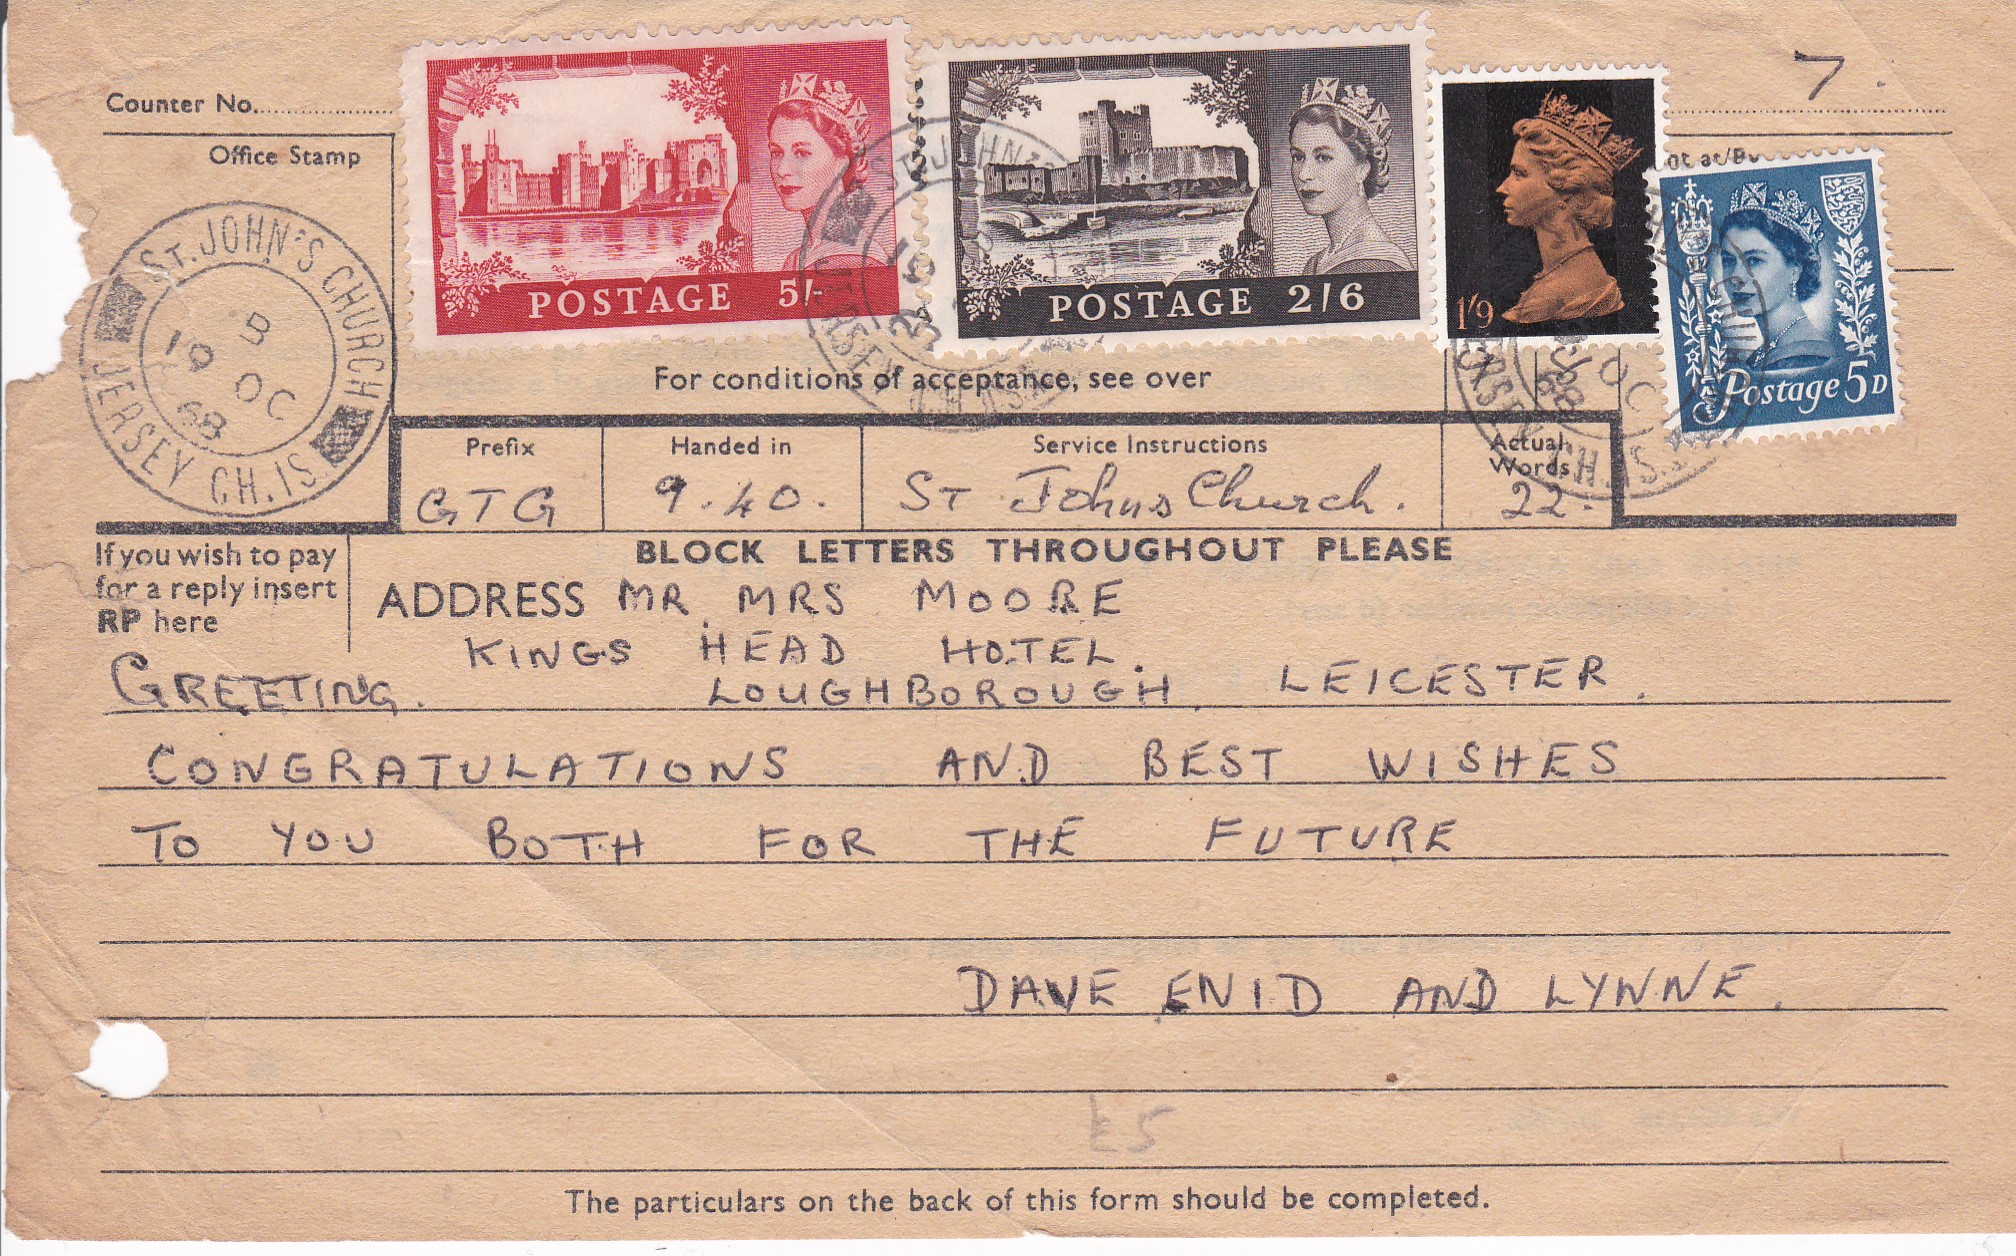 Counter No.
7.
Office Stamp
POSTAGE 5/-
POSTAGE 2/6
1'9
Postage 5D
ST. JOHN'S CHURCH
JERSEY CH. IS.
B
10 OC
68
ST. JOHN'S
JERSEY CH. IS.
OC
68
CH. IS.
For conditions of acceptance, see over
Prefix
GTG
Handed in
9.40.
Service Instructions
ST Johns Church.
Actual Words
22.
BLOCK LETTERS THROUGHOUT PLEASE
If you wish to pay
for a reply insert
RP here
ADDRESS MR MRS MOORE
KINGS HEAD HOTEL.
GREETING. LOUGHBOROUGH, LEICESTER.
CONGRATULATIONS AND BEST WISHES
TO YOU BOTH FOR THE FUTURE
DAVE ENID AND LYNNE.
£5
The particulars on the back of this form should be completed.